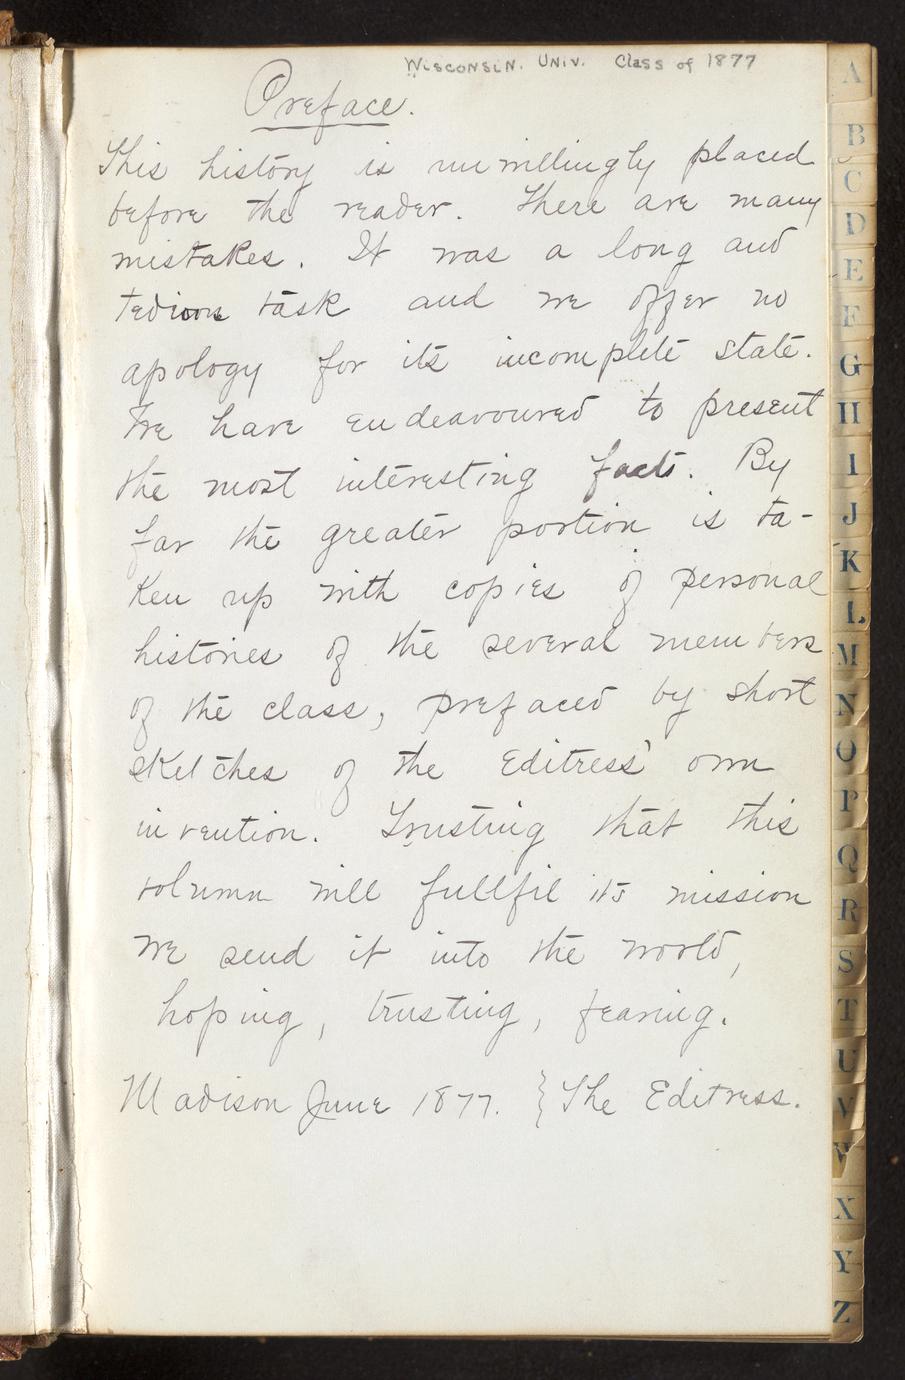 Wisconsin. Univ. Class of 1877
Preface.
This history is unwillingly placed
before the reader. There are many
mistakes. It was a long and
tedious task and we offer no
apology for its incomplete state.
We have endeavoured to present
the most interesting facts. By
far the greater portion is ta-
ken up with copies of personal
histories of the several members
of the class, prefaced by short
sketches of the Editress' own
invention. Trusting that this
volumn will fullfil its mission
we send it into the world,
hoping, trusting, fearing.
Madison June 1877. } The Editress.
A
B
C
D
E
F
G
H
I
J
K
L
M
N
O
P
Q
R
S
T
U
V
W
X
Y
Z